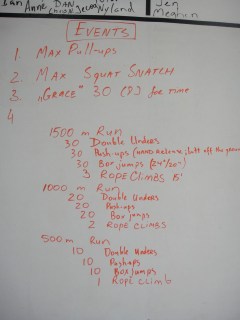 Ian
Anne DAN Jen
Nyland Meghan
EVENTS
1. MAX Pull-ups
2. MAX SQUAT SNATCH
3. "GRACE" 30 for time
4
1500 m Run
30 Double Unders
30 Push-ups (HAND Release, butt off the ground
30 Box jumps (24"/20"
3 ROPE CLIMBS 15'
1000 m Run
20 Double Unders
20 Push-ups
20 Box jumps
2 ROPE CLIMBS
500 m Run
10 Double Unders
10 Pushups
10 Box Jumps
1 ROPE CLIMB